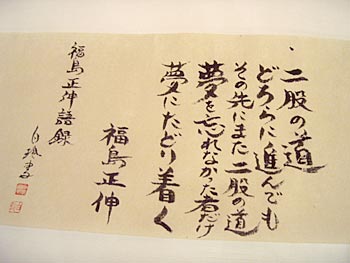 二股の道
どちらに進んでも
その先にまた二股の道
夢を忘れなかった者だけ
夢にたどり着く
福島正伸
福島正伸語録